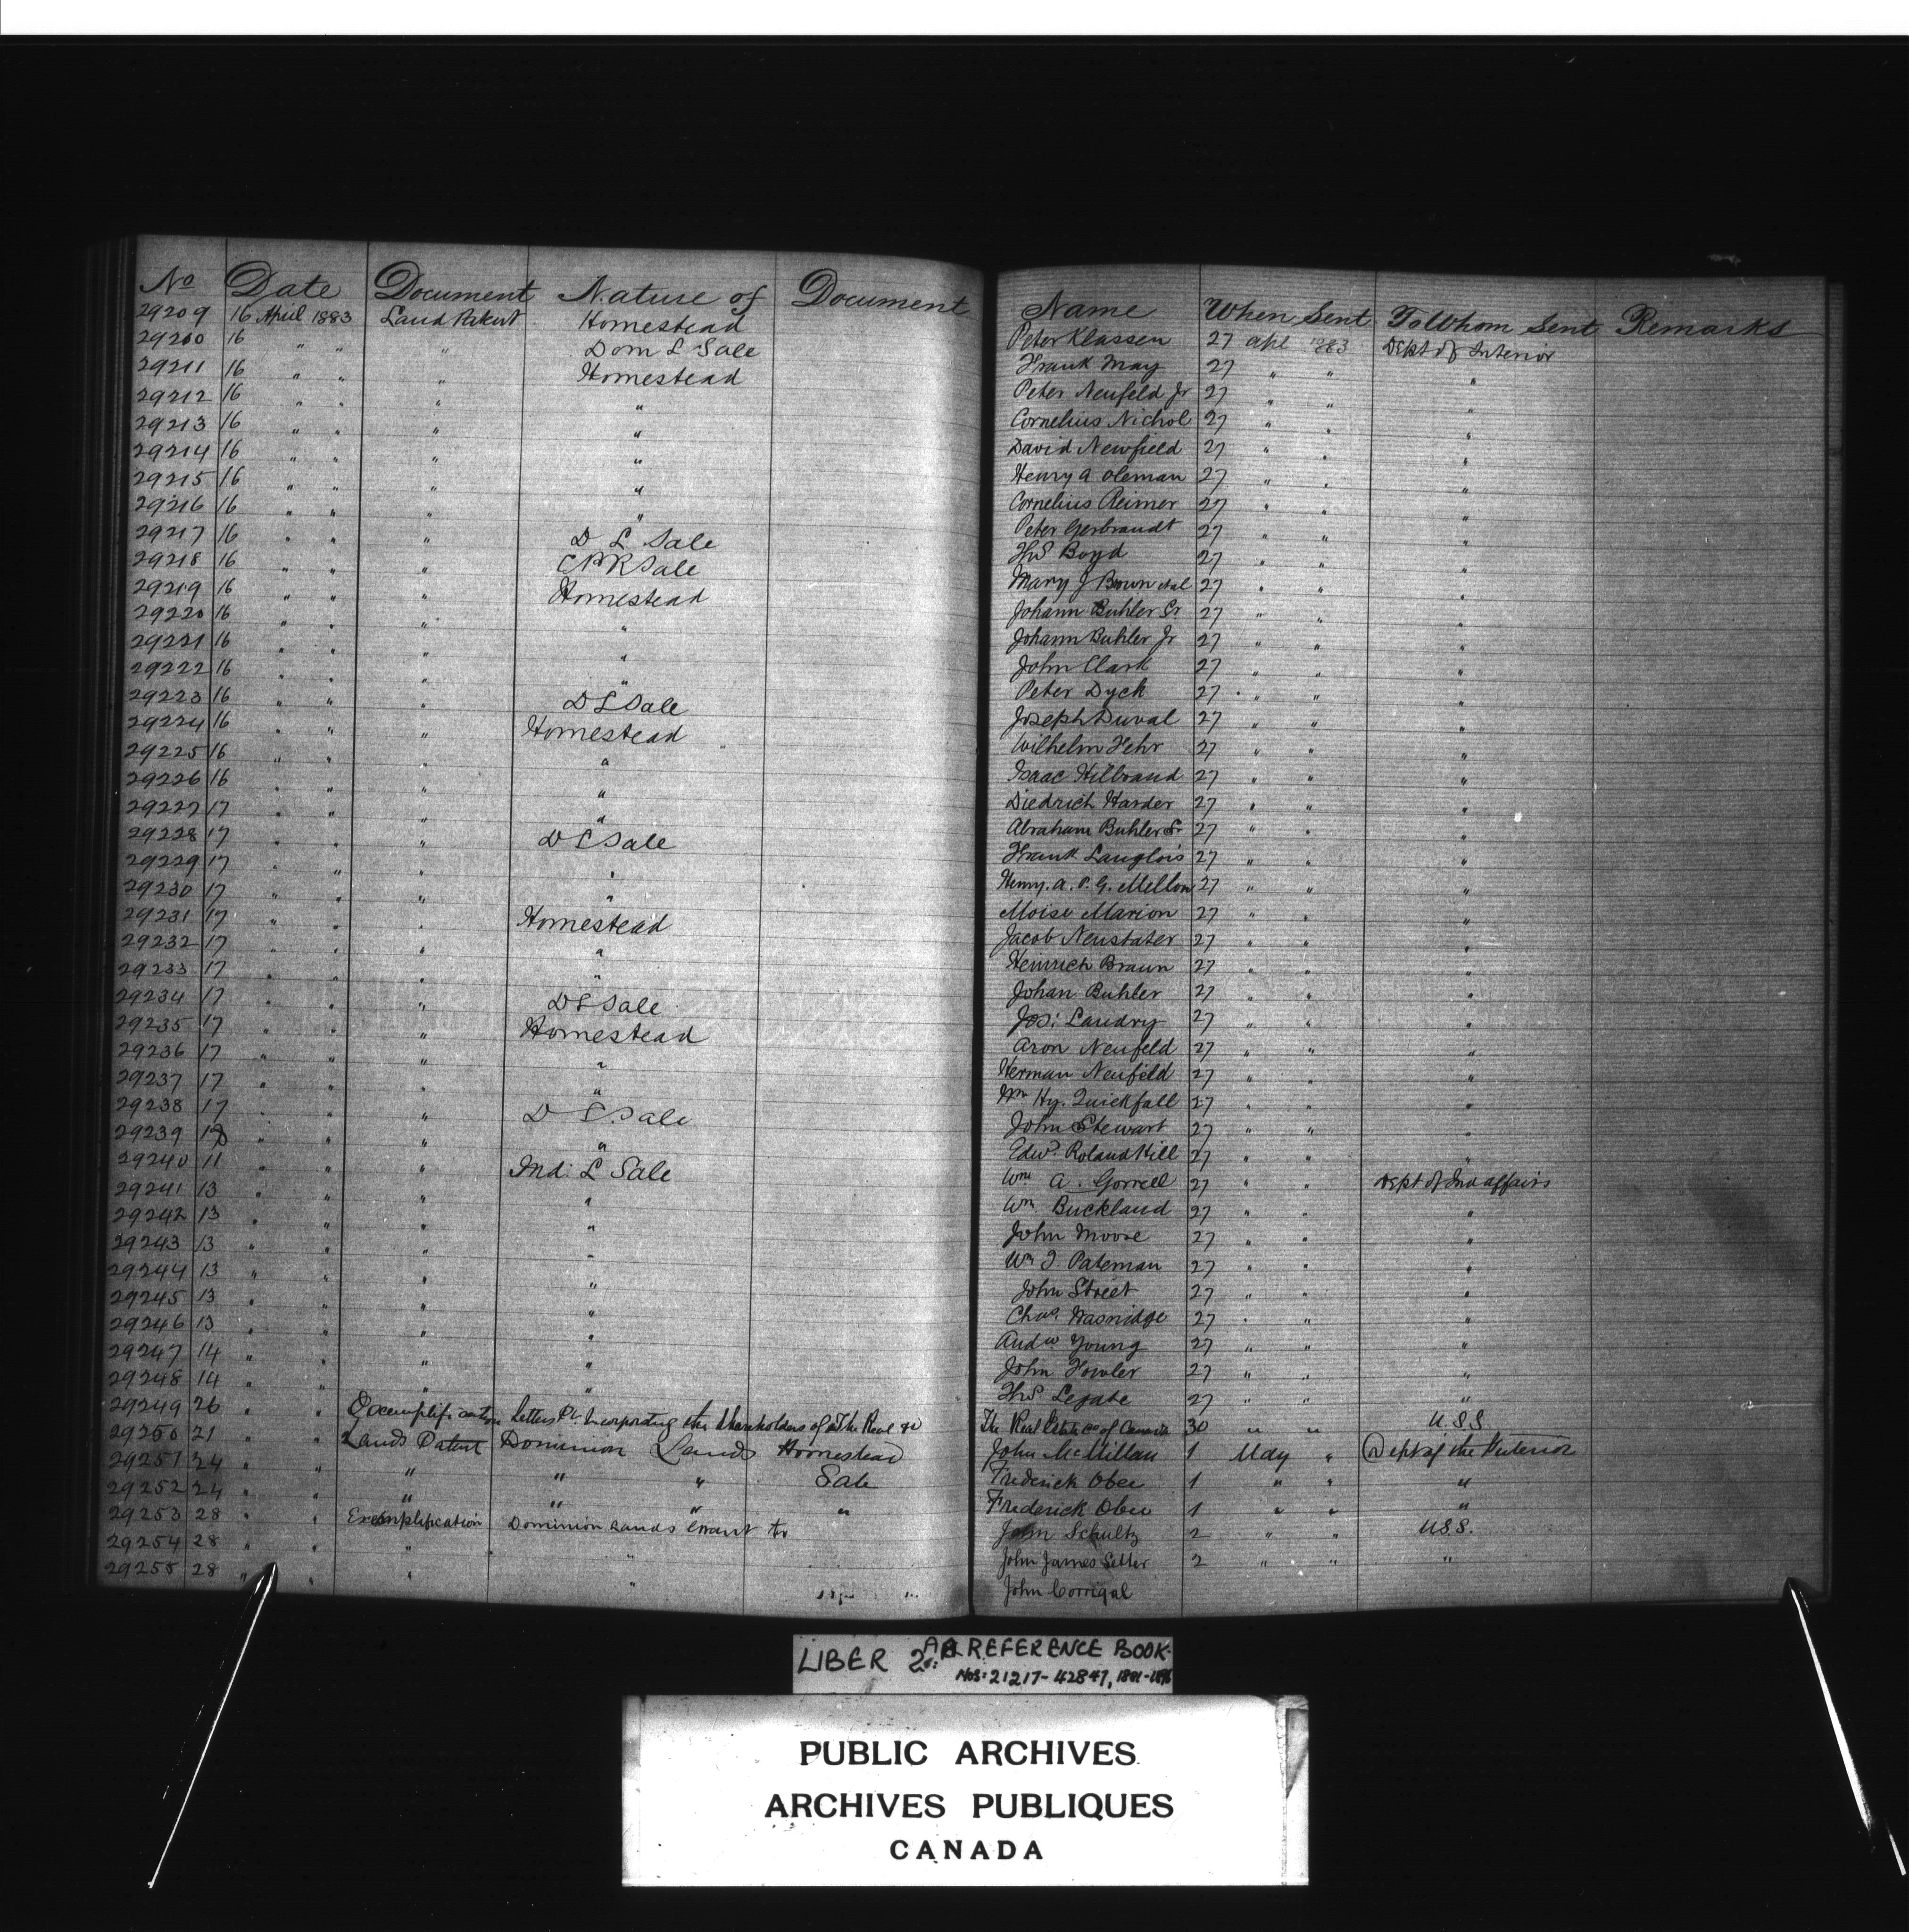 No Date Document Nature of Document Name When Sent To Whom Sent Remarks
29209 16 April 1883 Land Patent Homestead Peter Klassen 27 apl 1883 Dept of Interior
29210 16 " " " Dom L Sale Frank May 27 " " "
29211 16 " " " Homestead Peter Neufeld Jr 27 " " "
29212 16 " " " " Cornelius Nichol 27 " " "
29213 16 " " " " David Newfield 27 " " "
29214 16 " " " " Henry A Oleman 27 " " "
29215 16 " " " " Cornelius Reimer 27 " " "
29216 16 " " " " Peter Gerbrandt 27 " " "
29217 16 " " " D L Sale Thos Boyd 27 " " "
29218 16 " " " CPR Sale Mary J Brown et al 27 " " "
29219 16 " " " Homestead Johann Buhler Sr 27 " " "
29220 16 " " " " Johann Buhler Jr 27 " " "
29221 16 " " " " John Clark 27 " " "
29222 16 " " " " Peter Dyck 27 " " "
29223 16 " " " D L Sale Joseph Duval 27 " " "
29224 16 " " " Homestead Wilhelm Fehr 27 " " "
29225 16 " " " " Isaac Hilbrand 27 " " "
29226 16 " " " " Diedrich Harder 27 " " "
29227 17 " " " " Abraham Buhler Sr 27 " " "
29228 17 " " " D L Sale Frank Langlois 27 " " "
29229 17 " " " " Henry. A. P. G. Mellon 27 " " "
29230 17 " " " " Moise Marion 27 " " "
29231 17 " " " Homestead Jacob Neustater 27 " " "
29232 17 " " " " Heinrich Braun 27 " " "
29233 17 " " " " Johan Buhler 27 " " "
29234 17 " " " D L Sale Jos: Landry 27 " " "
29235 17 " " " Homestead Aron Neufeld 27 " " "
29236 17 " " " " Herman Neufeld 27 " " "
29237 17 " " " " Wm Hy. Quickfall 27 " " "
29238 17 " " " D L Sale John Stewart 27 " " "
29239 18 " " " " Edwd Roland Hill 27 " " "
29240 11 " " " Ind: L Sale Wm A. Gorrell 27 " " Dept of Ind affairs
29241 13 " " " " Wm Buckland 27 " " "
29242 13 " " " " John Moore 27 " " "
29243 13 " " " " Wm J. Pateman 27 " " "
29244 13 " " " " John Street 27 " " "
29245 13 " " " " Chas. Wasnidge 27 " " "
29246 13 " " " " Andw Young 27 " " "
29247 14 " " " " John Fowler 27 " " "
29248 14 " " " " Thos Legate 27 " " "
29249 26 " " Exemplification Letters Pt. Incorporating the Shareholders of The Real &c The Real Estate Co of Canada 30 " " U.S.S.
29250 21 " " Lands Patent Dominion Lands Homestead John McMillan 1 May " Dept of the Interior
29251 24 " " " " " Sale Frederick Ober 1 " " "
29252 24 " " " " " " Frederick Ober 1 " " "
29253 28 " " Exemplification Dominion Lands Grant to John Schultz 2 " " U.S.S.
29254 28 " " " " John James Setter 2 " " "
29255 28 " " " " John Corrigal
LIBER 2A: REFERENCE BOOK
NOS: 21217-42847, 1881-1886
PUBLIC ARCHIVES
ARCHIVES PUBLIQUES
CANADA